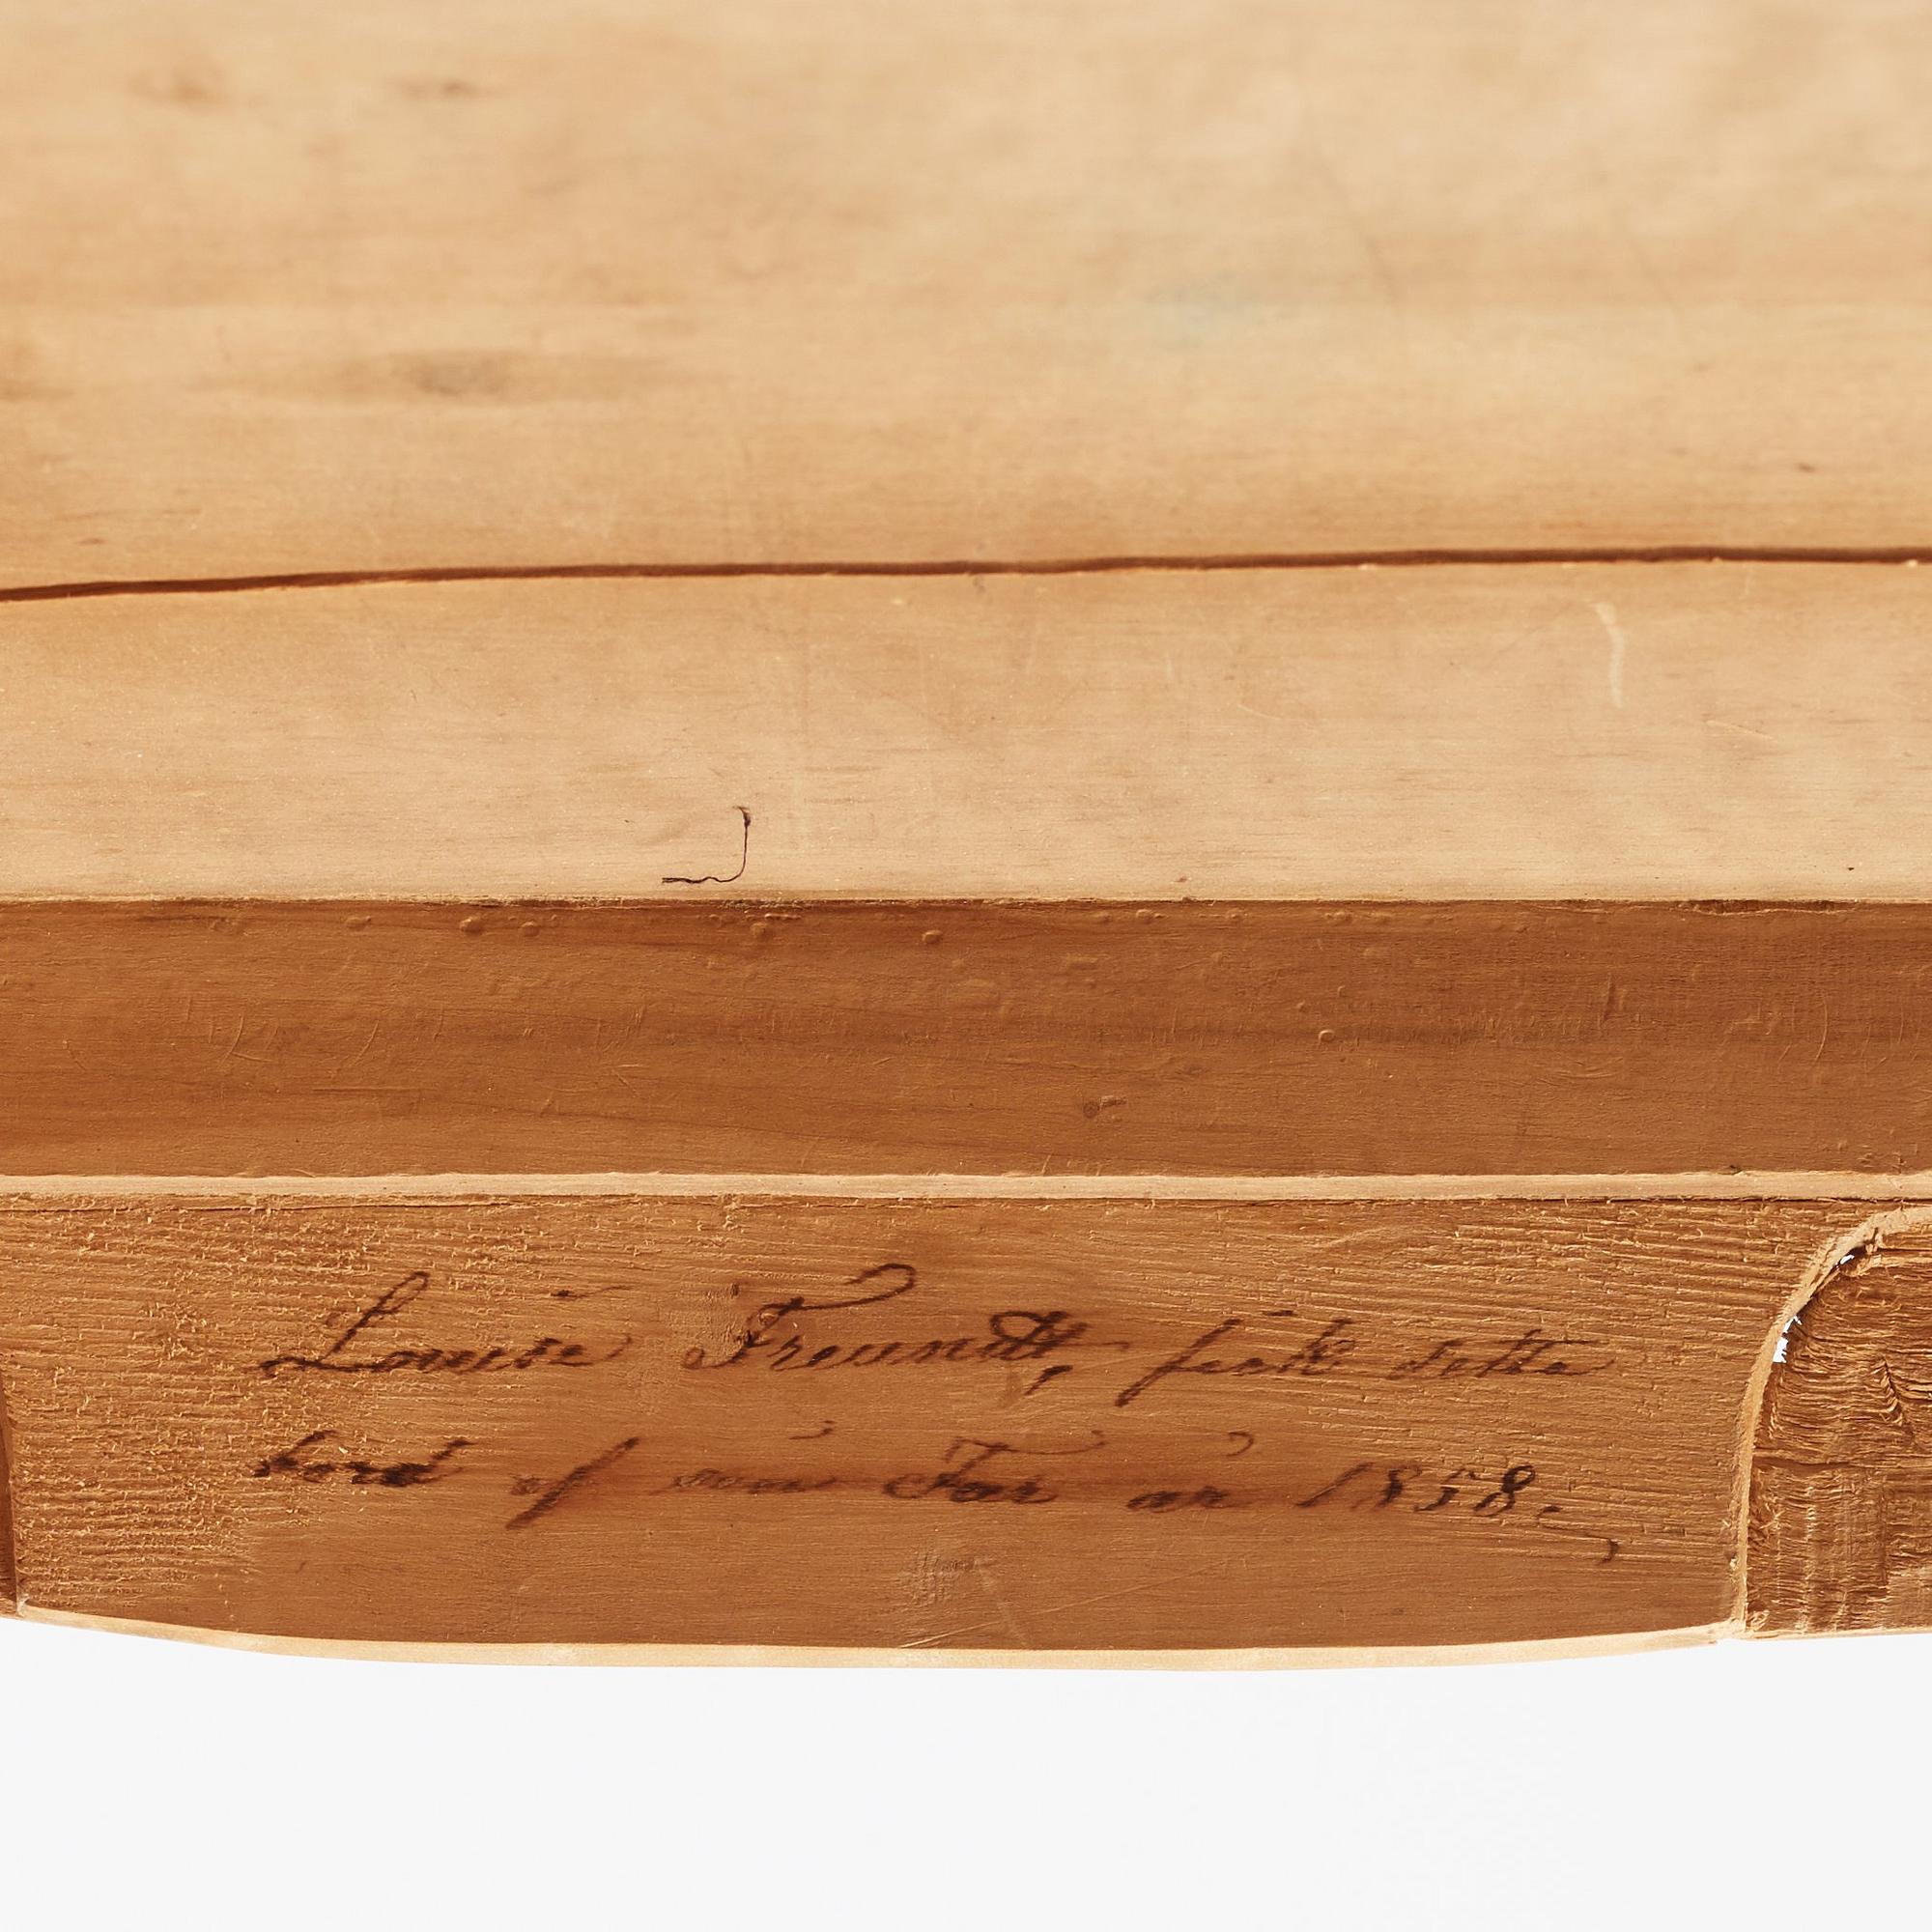 Louise Freundt, fick detta
bord af sin Far år 1858.